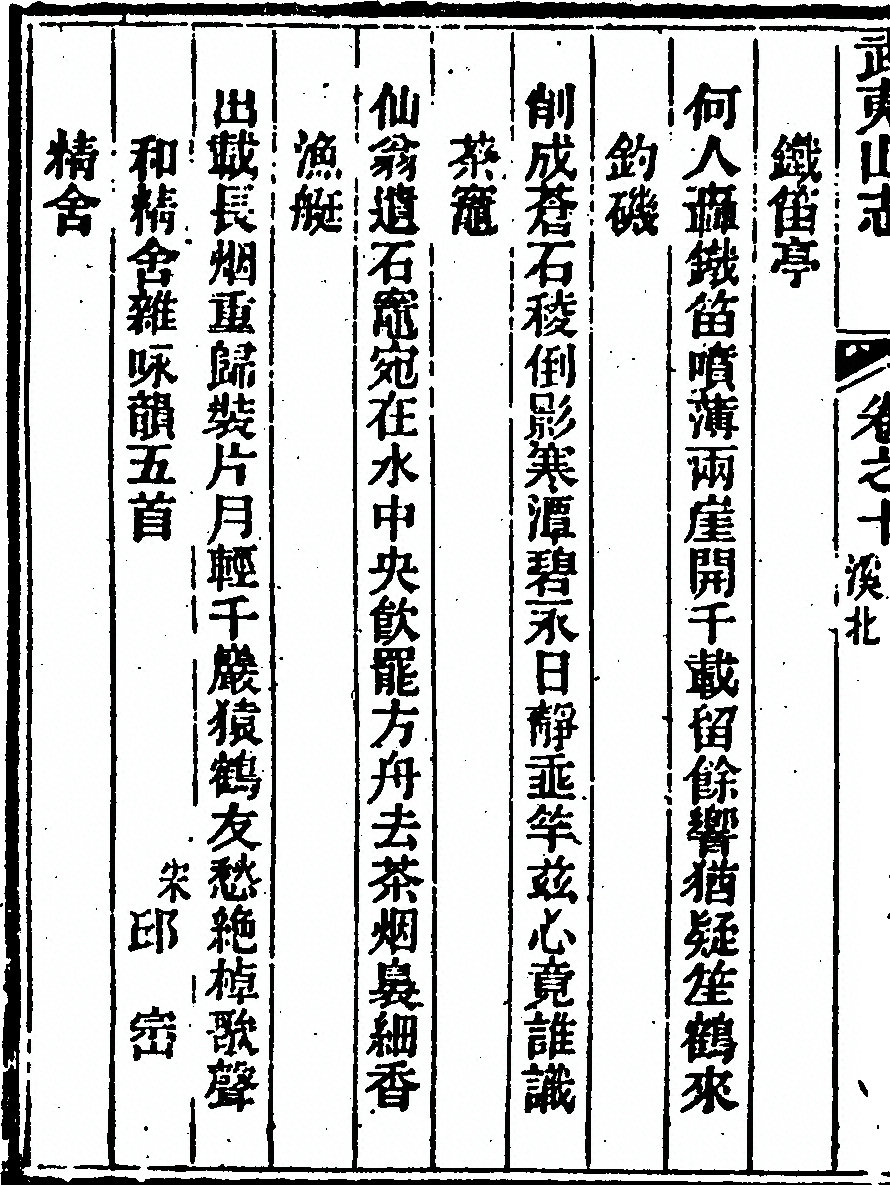 武夷山志 卷之十 溪北
鐵笛亭
何人轟鐵笛噴薄兩崖開千載留餘響猶疑笙鶴來
釣磯
削成蒼石稜倒影寒潭碧永日靜垂竿兹心竟誰識
茶竈
仙翁遺石竈宛在水中央飮罷方舟去茶烟裊細香
漁艇
出載長烟重歸裝片月輕千巖猿鶴友愁絶棹歌聲
和精舍雜咏韻五首 宋 邱 崈
精舍